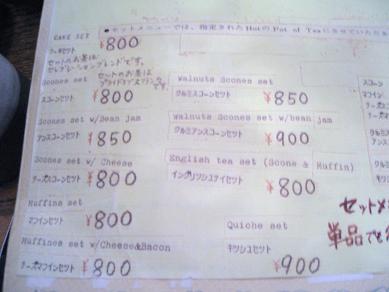 ●セットメニューでは、指定されたHotのPot of Teaに
CAKE SET ¥800
ケーキセット
セットのお茶は
セレブレーションブレンドです。
セットのお茶は
Scones set
スコーンセット ¥800
Walnuts Scones set
クルミスコーンセット ¥850
Scones set w/Bean jam
アンスコーンセット ¥850
Walnuts Scones set w/bean jam
クルミアンスコーンセット ¥900
Scones set w/ Cheese
チーズスコーンセット ¥800
English tea set (Scone & Muffin)
イングリッシュティセット ¥800
Muffins set
マフィンセット ¥800
Muffines set w/Cheese&Bacon
チーズマフィンセット ¥800
Quiche set
キッシュセット ¥900
セットメ
単品でも